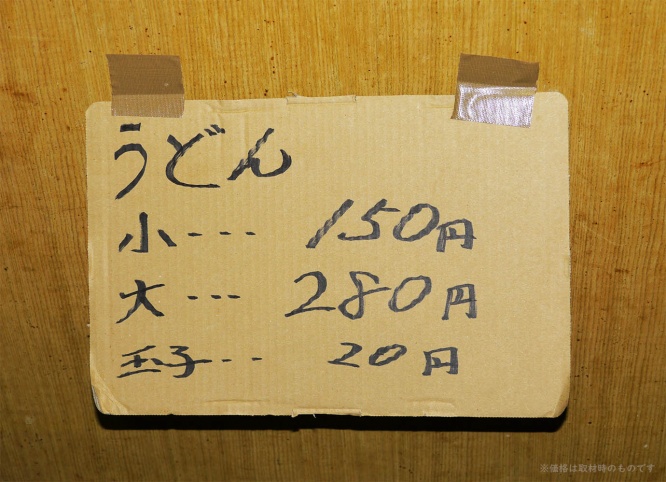 うどん
小・・・ 150円
大・・・ 280円
玉子・・ 20円
※価格は取材時のものです